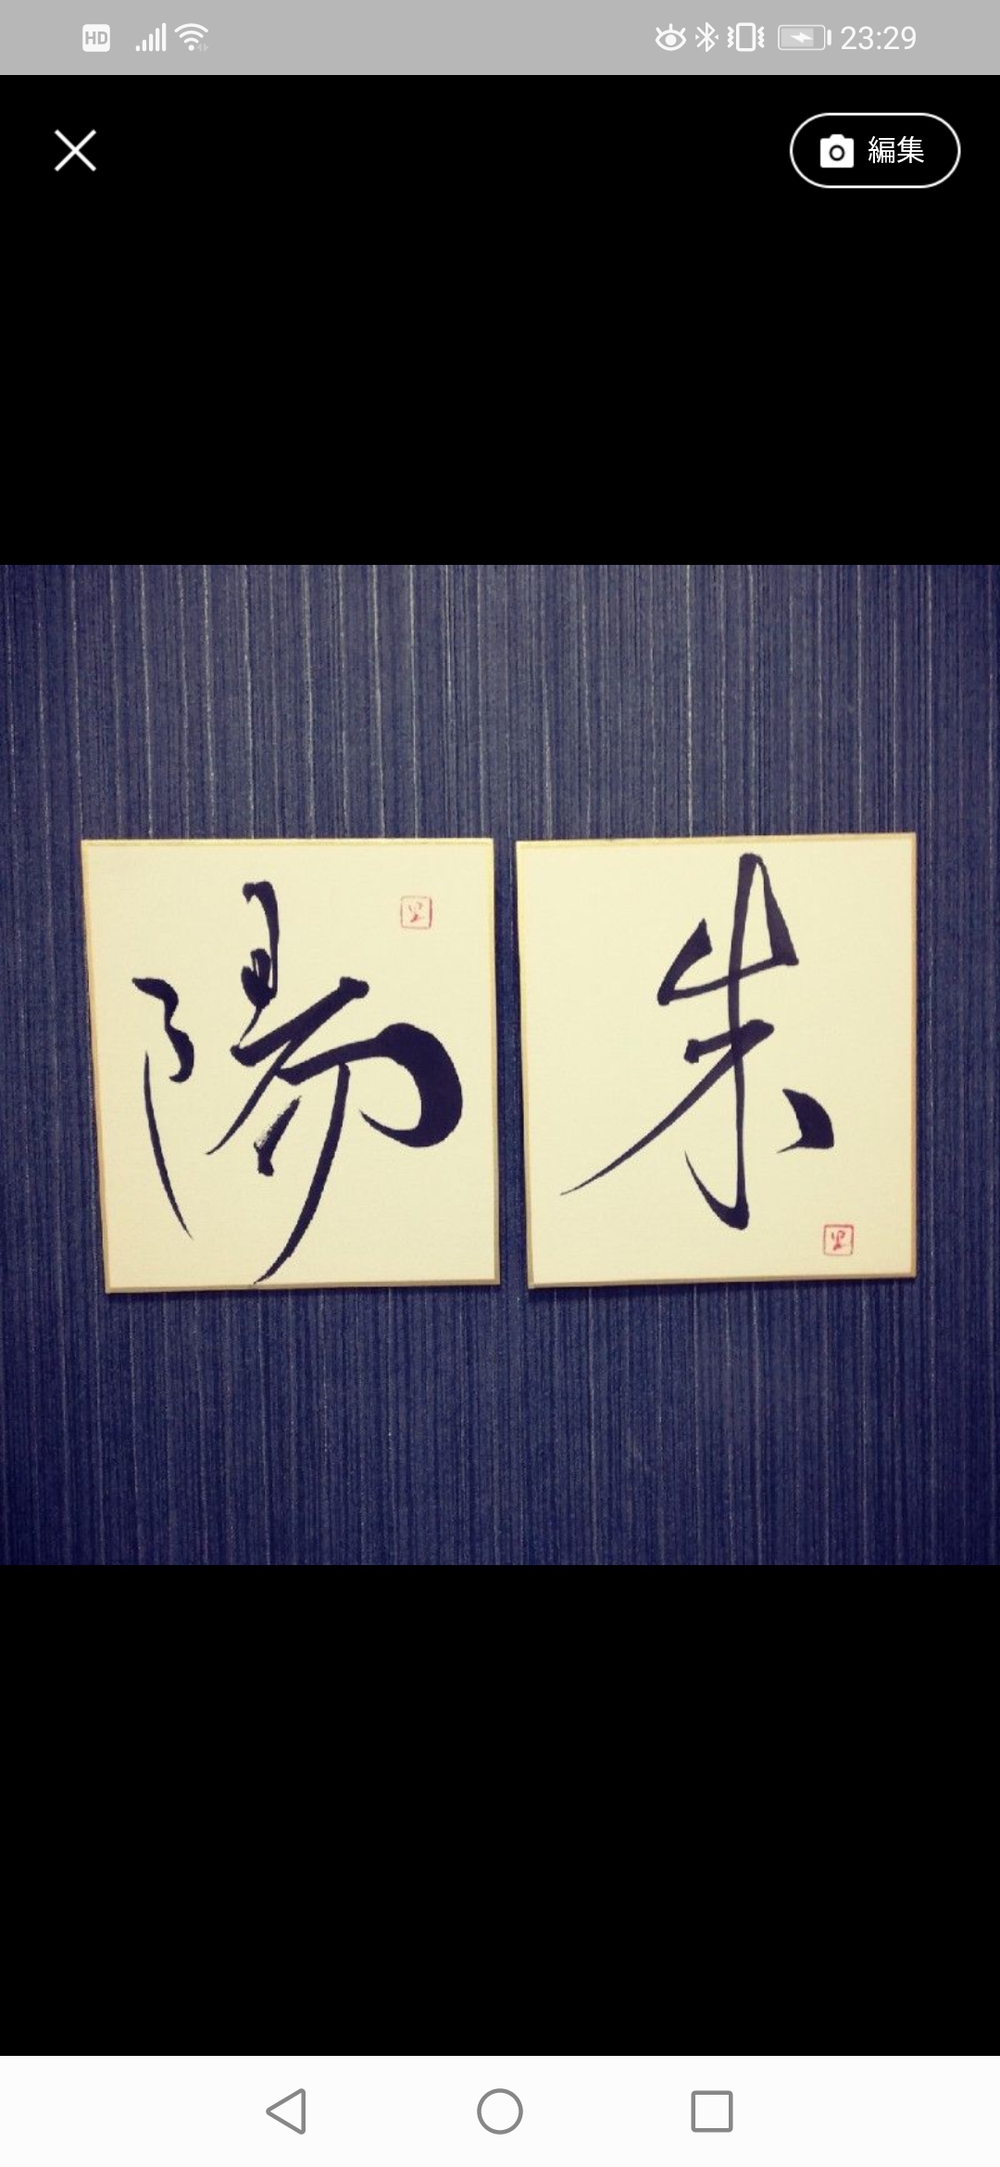 HD
23:29
編集
陽 朱